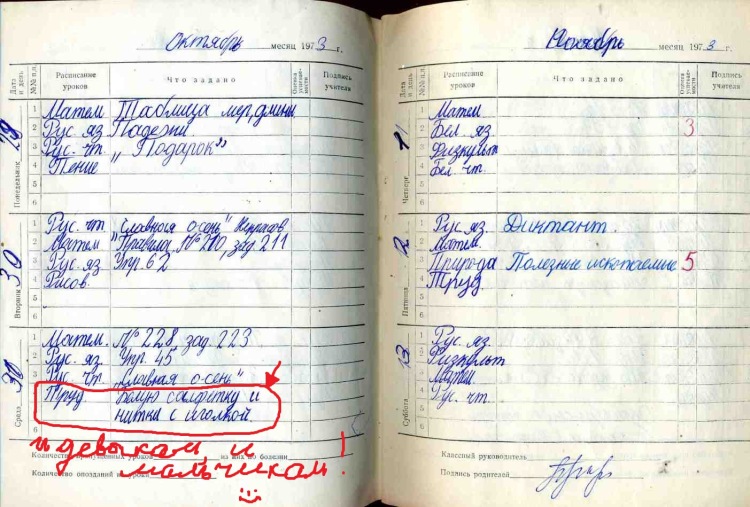 Октябрь месяц 1973 г.
Дата и день №№ п.п. Расписание уроков Что задано Оценка успеваемости Подпись учителя
Понедельник
1 Матем Таблица мер, длины
2 Рус. яз Падежи
3 Рус. чт. „Подарок"
4 Пение
5
6
Вторник 30
1 Рус. чт „Славная осень" Некрасов
2 Матем Правило, № 210, зад. 211
3 Рус. яз Упр. 62
4 Рисов.
5
6
Среда
1 Матем. № 228, зад. 223
2 Рус. яз. Упр. 45
3 Рус. чт. „Славная осень"
Труд Белую салфетку и
нитка с иголкой.
6
и девочкам, и
мальчикам!
Количество пропущенных уроков из них по болезни
Количество опозданий на уроки
Ноябрь месяц 1973 г.
Дата и день №№ п.п. Расписание уроков Что задано Оценка успеваемости Подпись учителя
Четверг 1
1 Матем.
2 Бел. яз. 3
3 Физкульт
4 Бел чт.
5
6
Пятница 2
1 Рус. яз. Диктант.
2 Матем.
3 Природа Полезные ископаемые 5
4 Труд.
5
6
Суббота 3
1 Рус. яз.
2 Физкульт
3 Матем.
4 Рус. чт.
5
6
Классный руководитель
Подпись родителей